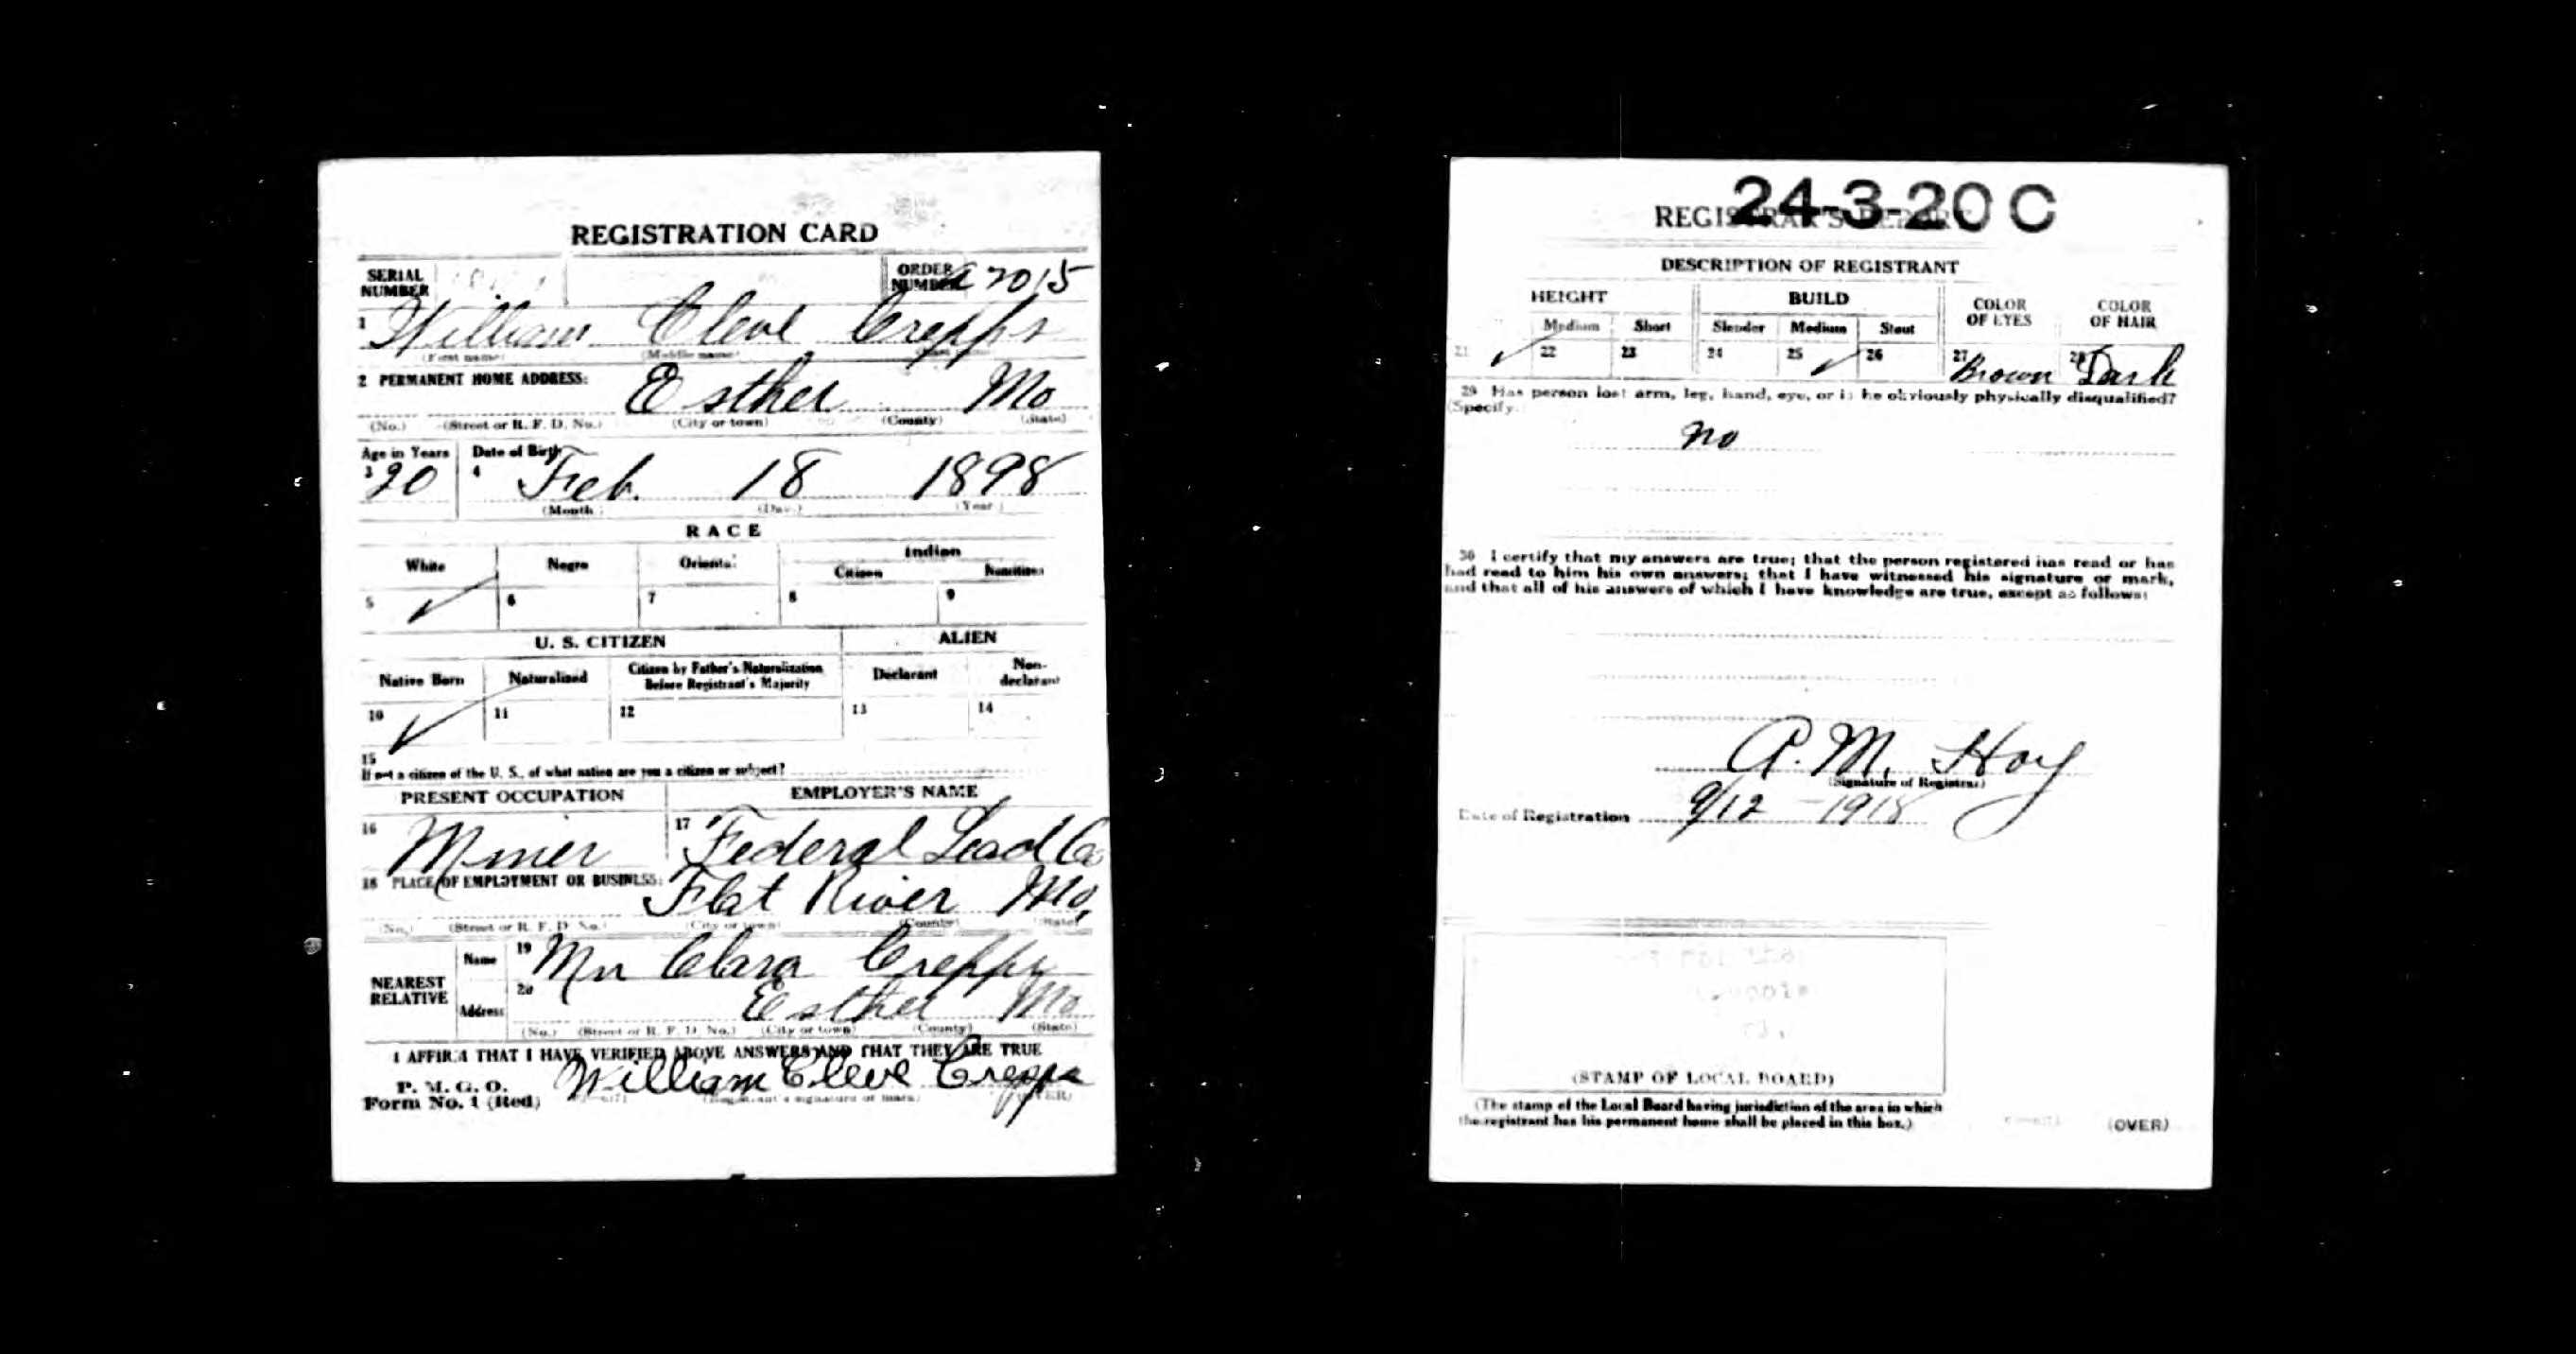 REGISTRATION CARD
SERIAL NUMBER
ORDER NUMBER A 2015
1 William Cleve Crepps
(First name) (Middle name)
2 PERMANENT HOME ADDRESS: Esther Mo
(No.) (Street or R. F. D. No.) (City or town) (County) (State)
Age in Years Date of Birth
3 20 4 Feb. 18 1898
(Month) (Day.) (Year)
RACE
White Negro Oriental Indian
Citizen Noncitizen
5 ✓ 6 7 8 9
U. S. CITIZEN ALIEN
Native Born Naturalized Citizen by Father's Naturalization Before Registrant's Majority Declarant Non-declarant
10 ✓ 11 12 13 14
15
If not a citizen of the U. S., of what nation are you a citizen or subject?
PRESENT OCCUPATION EMPLOYER'S NAME
16 Miner 17 Federal Lead Co
18 PLACE OF EMPLOYMENT OR BUSINESS: Flat River Mo,
(No.) (Street or R. F. D. No.) (City or town) (County) (State)
NEAREST RELATIVE
Name 19 Mrs Clara Crepps
Address 20 Esther Mo
(No.) (Street or R. F. D. No.) (City or town) (County) (State)
I AFFIRM THAT I HAVE VERIFIED ABOVE ANSWERS AND THAT THEY ARE TRUE
P. M. G. O.
Form No. 1 (Red) William Cleve Crepps
(Registrant's signature or mark) (OVER)
24-3-20 C
REGISTRAR'S REPORT
DESCRIPTION OF REGISTRANT
HEIGHT BUILD COLOR OF EYES COLOR OF HAIR
Medium Short Slender Medium Stout
21 ✓ 22 23 24 25 ✓ 26 27 Brown 28 Dark
29 Has person lost arm, leg, hand, eye, or is he obviously physically disqualified?
(Specify.)
no
30 I certify that my answers are true; that the person registered has read or has
had read to him his own answers; that I have witnessed his signature or mark,
and that all of his answers of which I have knowledge are true, except as follows:
A. M. Hoy
(Signature of Registrar)
Date of Registration 9/12 - 1918
(STAMP OF LOCAL BOARD)
(The stamp of the Local Board having jurisdiction of the area in which
the registrant has his permanent home shall be placed in this box.)
(OVER)